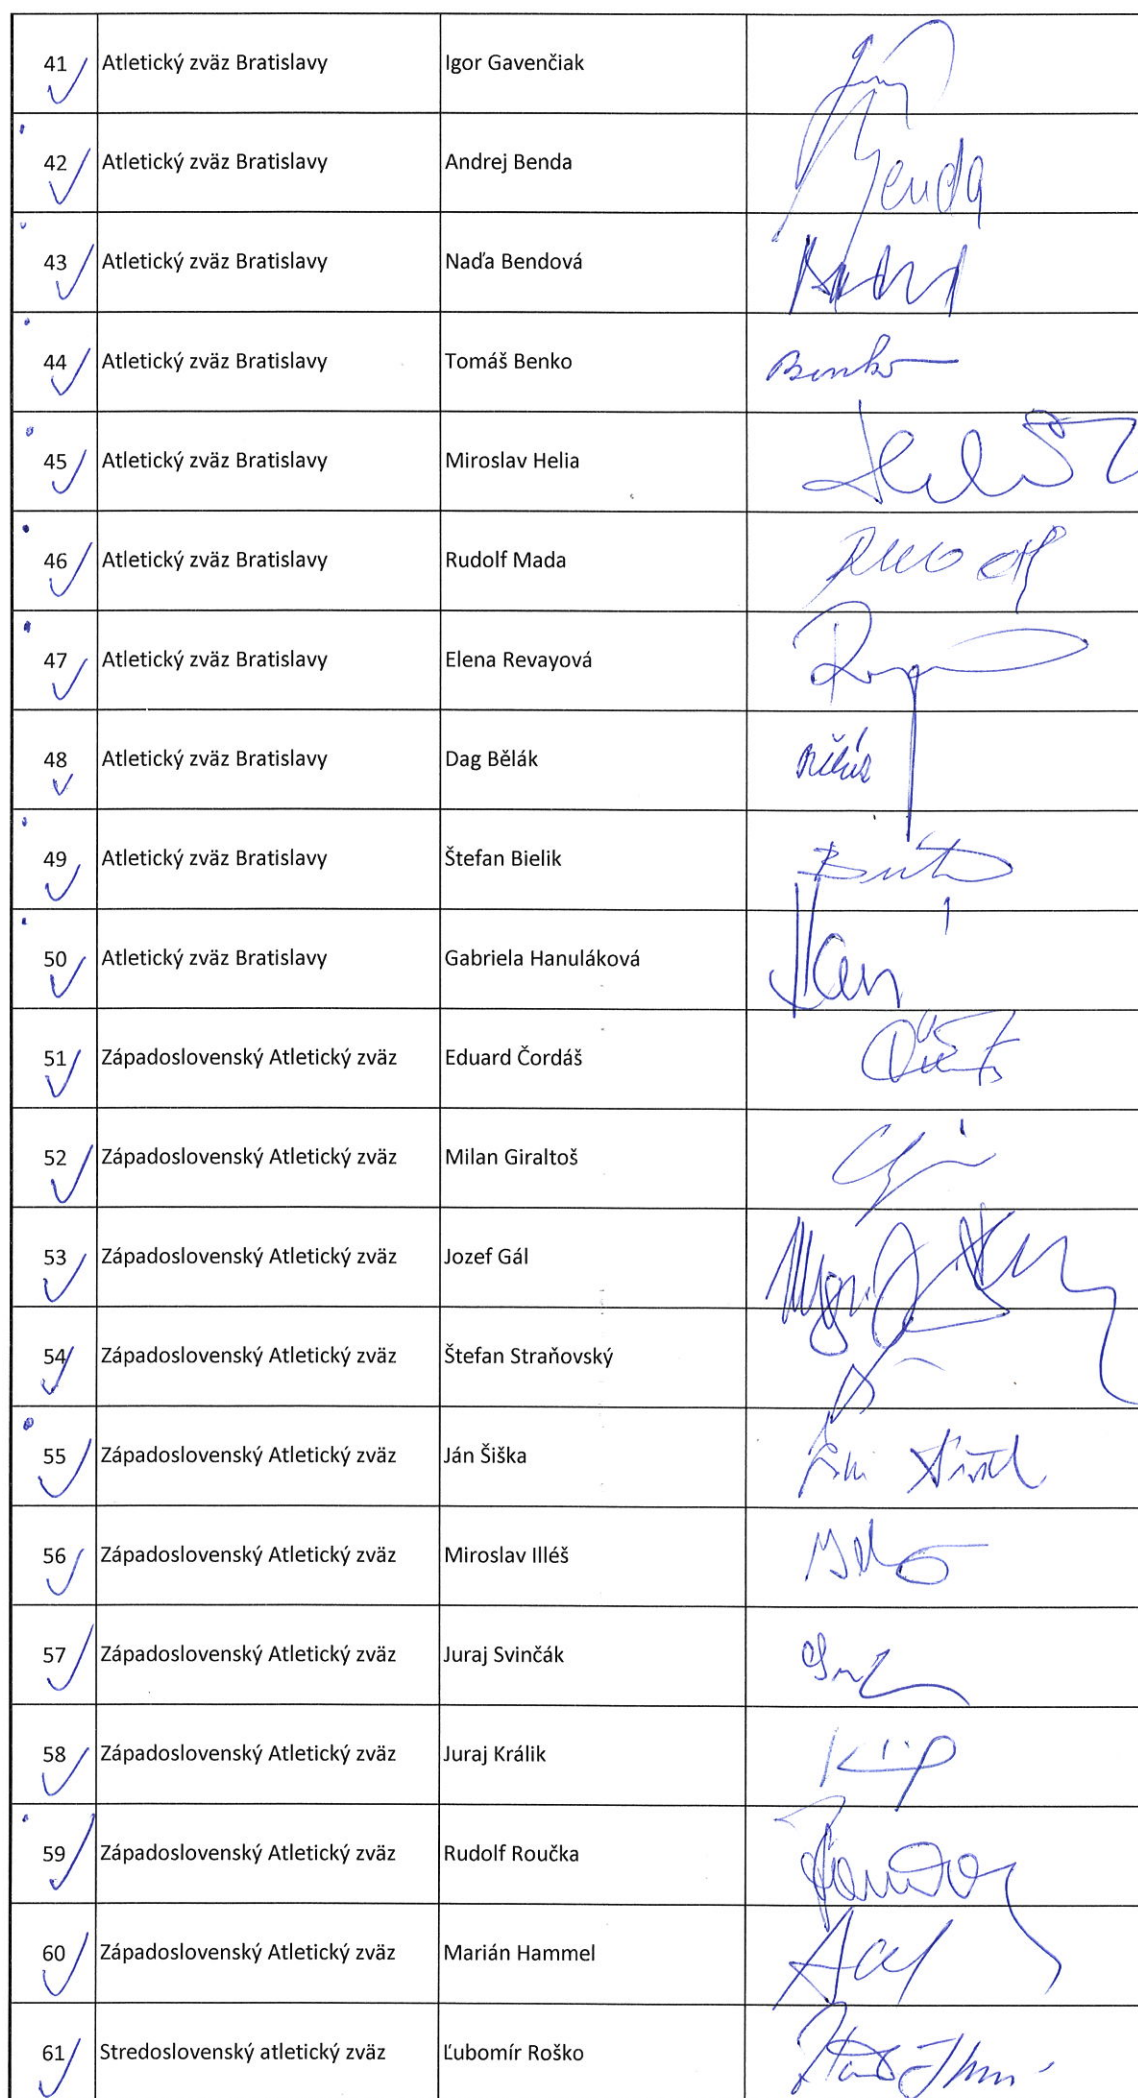 41 Atletický zväz Bratislavy Igor Gavenčiak
42 Atletický zväz Bratislavy Andrej Benda Benda
43 Atletický zväz Bratislavy Naďa Bendová
44 Atletický zväz Bratislavy Tomáš Benko Benko
45 Atletický zväz Bratislavy Miroslav Helia
46 Atletický zväz Bratislavy Rudolf Mada
47 Atletický zväz Bratislavy Elena Revayová
48 Atletický zväz Bratislavy Dag Bělák
49 Atletický zväz Bratislavy Štefan Bielik
50 Atletický zväz Bratislavy Gabriela Hanuláková
51 Západoslovenský Atletický zväz Eduard Čordáš
52 Západoslovenský Atletický zväz Milan Giraltoš
53 Západoslovenský Atletický zväz Jozef Gál
54 Západoslovenský Atletický zväz Štefan Straňovský
55 Západoslovenský Atletický zväz Ján Šiška
56 Západoslovenský Atletický zväz Miroslav Illéš
57 Západoslovenský Atletický zväz Juraj Svinčák
58 Západoslovenský Atletický zväz Juraj Králik
59 Západoslovenský Atletický zväz Rudolf Roučka
60 Západoslovenský Atletický zväz Marián Hammel
61 Stredoslovenský atletický zväz Ľubomír Roško